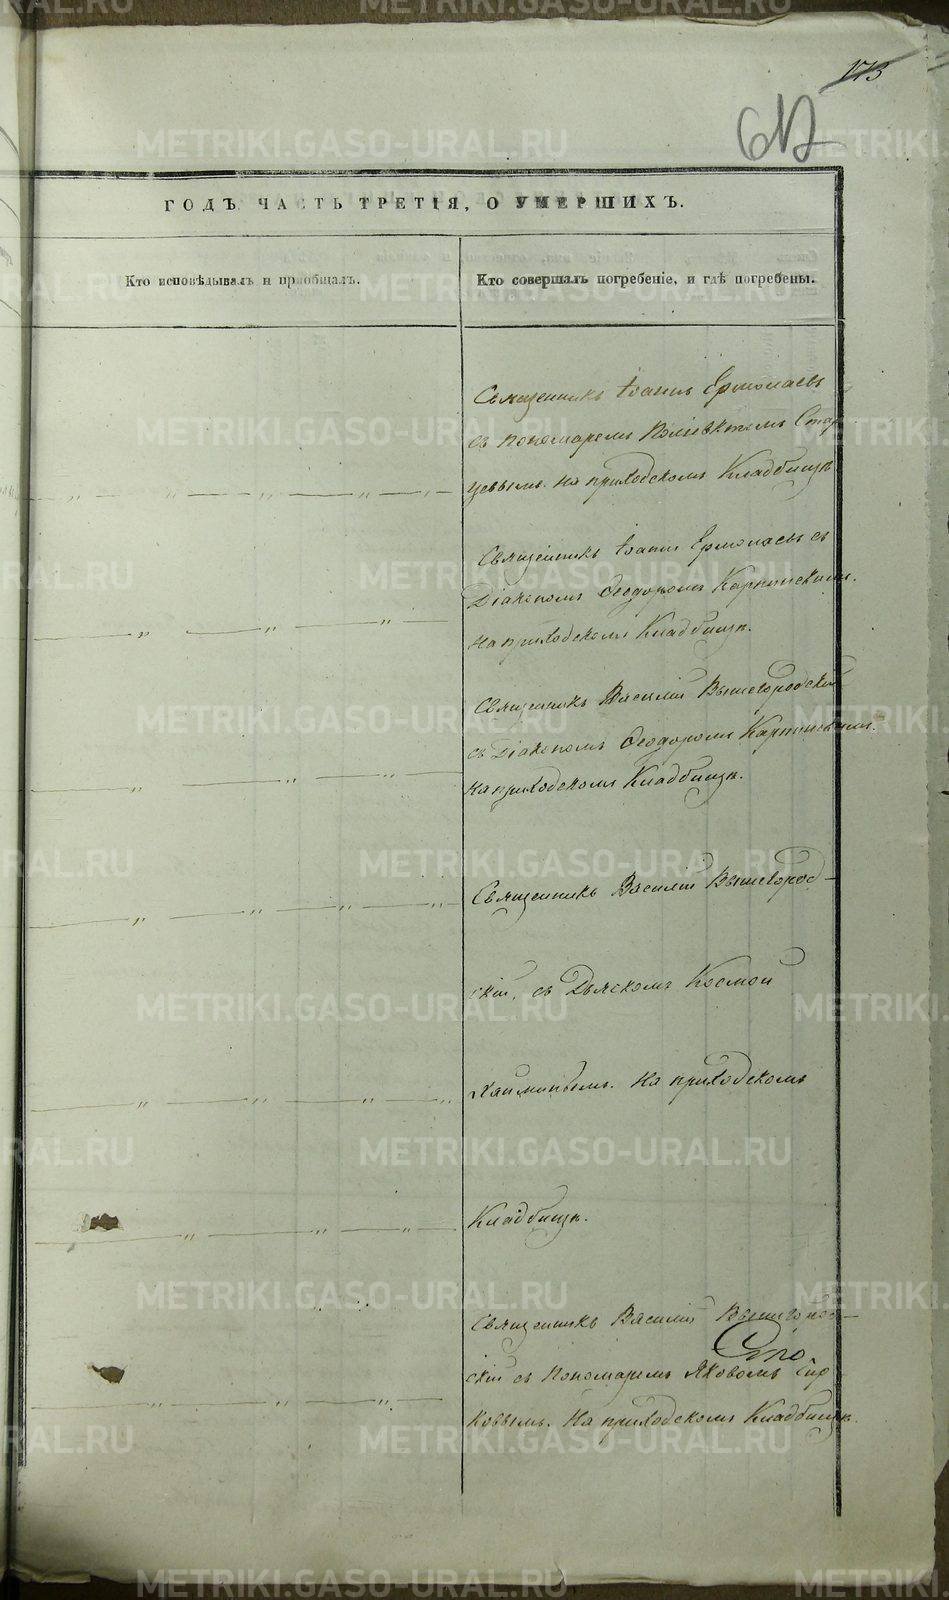 173
612
ГОДЪ ЧАСТЬ ТРЕТІЯ, О УМЕРШИХЪ.
Кто исповѣдывалъ и пріобщалъ.
Кто совершалъ погребеніе, и гдѣ погребены.
Священникъ Іоаннъ Ермолаевъ
съ пономаремъ Поліевктомъ Стар
цевымъ. На приходскомъ Кладбищѣ
Священникъ Іоаннъ Ермолаевъ съ
Діакономъ Ѳеодоромъ Карпинскимъ.
На приходскомъ Кладбищѣ.
Священникъ Василій Вышегородскій
съ Діакономъ Ѳеодоромъ Карпинскимъ.
На приходскомъ Кладбищѣ.
Священникъ Василій Вышегород-
скій, съ Дьячкомъ Космой
На приходскомъ
Кладбищѣ.
Священникъ Василій Вышегород-
скій съ Пономаремъ Яковомъ
ковымъ. На приходскомъ Кладбищѣ.
METRIKI.GASO-URAL.RU